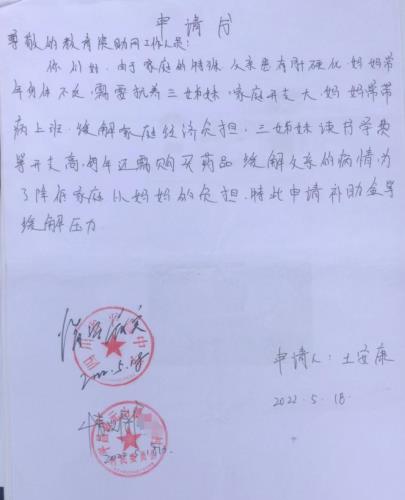 申请书
尊敬的教育资助网工作人员:
你们好,由于家庭的特殊,父亲患有肝硬化,妈妈常
年身体不适,需要抚养三姊妹,家庭开支大,妈妈常带
病上班,缓解家庭经济负担,三姊妹读书学费
等开支高,每年还需购买药品缓解父亲的病情,为
了降低家庭以妈妈的负担,特此申请补助金等
缓解压力
情况属实
2022.5.18
申请人:王安康
2022.5.18.
情况属实